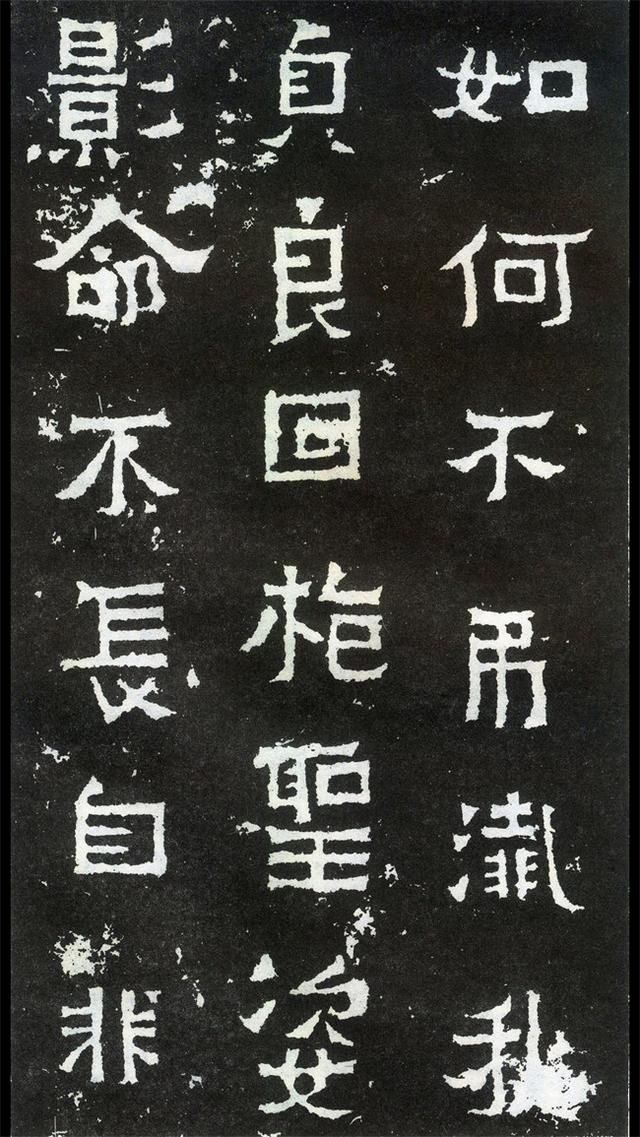 如何不弔瀸我
貞良回枹聖姿
影命不長自非